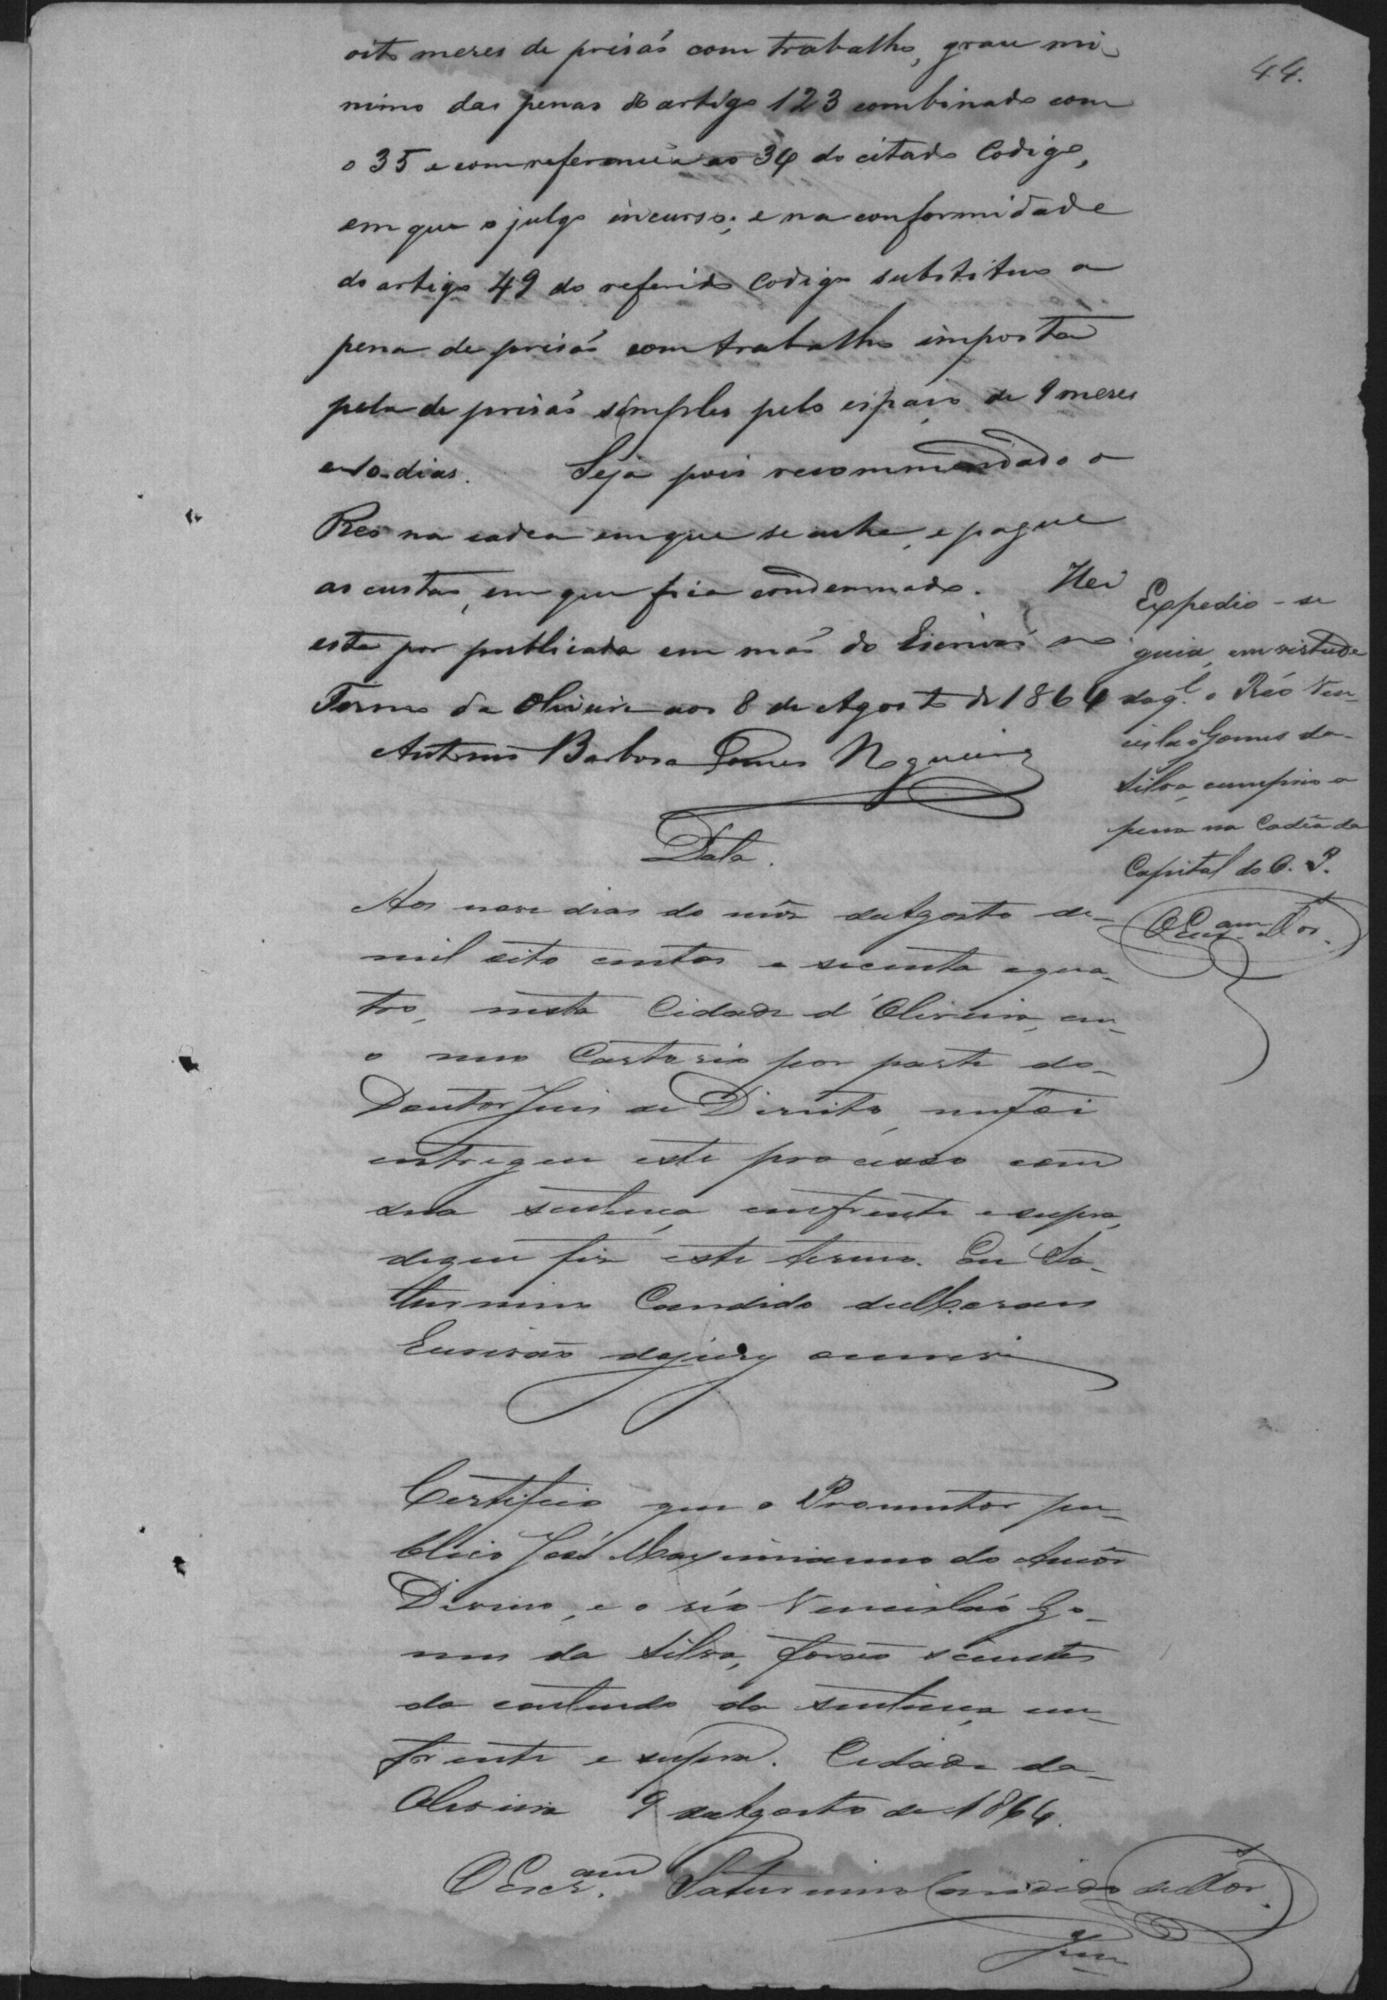 44.
oito mezes de prisaõ com trabalho, grau mi
nimo das penas do artigo 123 combinado com
o 35 e com referencia ao 34 do citado Codigo,
em que o julgo incurso; e na conformidade
do artigo 49 do referido Codigo substituo a
pena de prisaõ com trabalho imposta
pela de prisaõ simples pelo espaço de 9 mezes
e 10 dias. Seja pois recommendado o
Reo na cadea em que se acha, e pague
as custas, em que fica condemnado. Hei
esta por publicada em maõ do Escrivaõ no
Termo da Oliveira aos 8 de Agosto de 1864
Antonio Barbosa Gomes Nogueira
Data.
Aos nove dias do mês de Agosto de
mil oito centos e secenta e qua
tro, nesta Cidade d'Oliveira, em
o meu Cartorio por parte do
Doutor Juis de Direito, me foi
entregue este processo com
sua sentença emfrente e supra,
de que fis este termo. Eu Sa
turnino Candido de Moraes
Escrivão do jury escrevi
Certifico que o Promutor pu
blico José Maximianno do Amôr
Divino, e o réo Vencisláo Go
mes da Silva, forão scientes
do contendo da sentença em
frente e supra. Cidade da
Oliveira 9 de Agosto de 1864.
O Escr.am Saturnino Candido de Mor.s
Expedio-se
guia, em virtude
da q.l o Réo Ven
cisláo Gomes da
Silva, cumprio a
pena na Cadêa da
Capital do O. P.
O Escr.am Mor.s